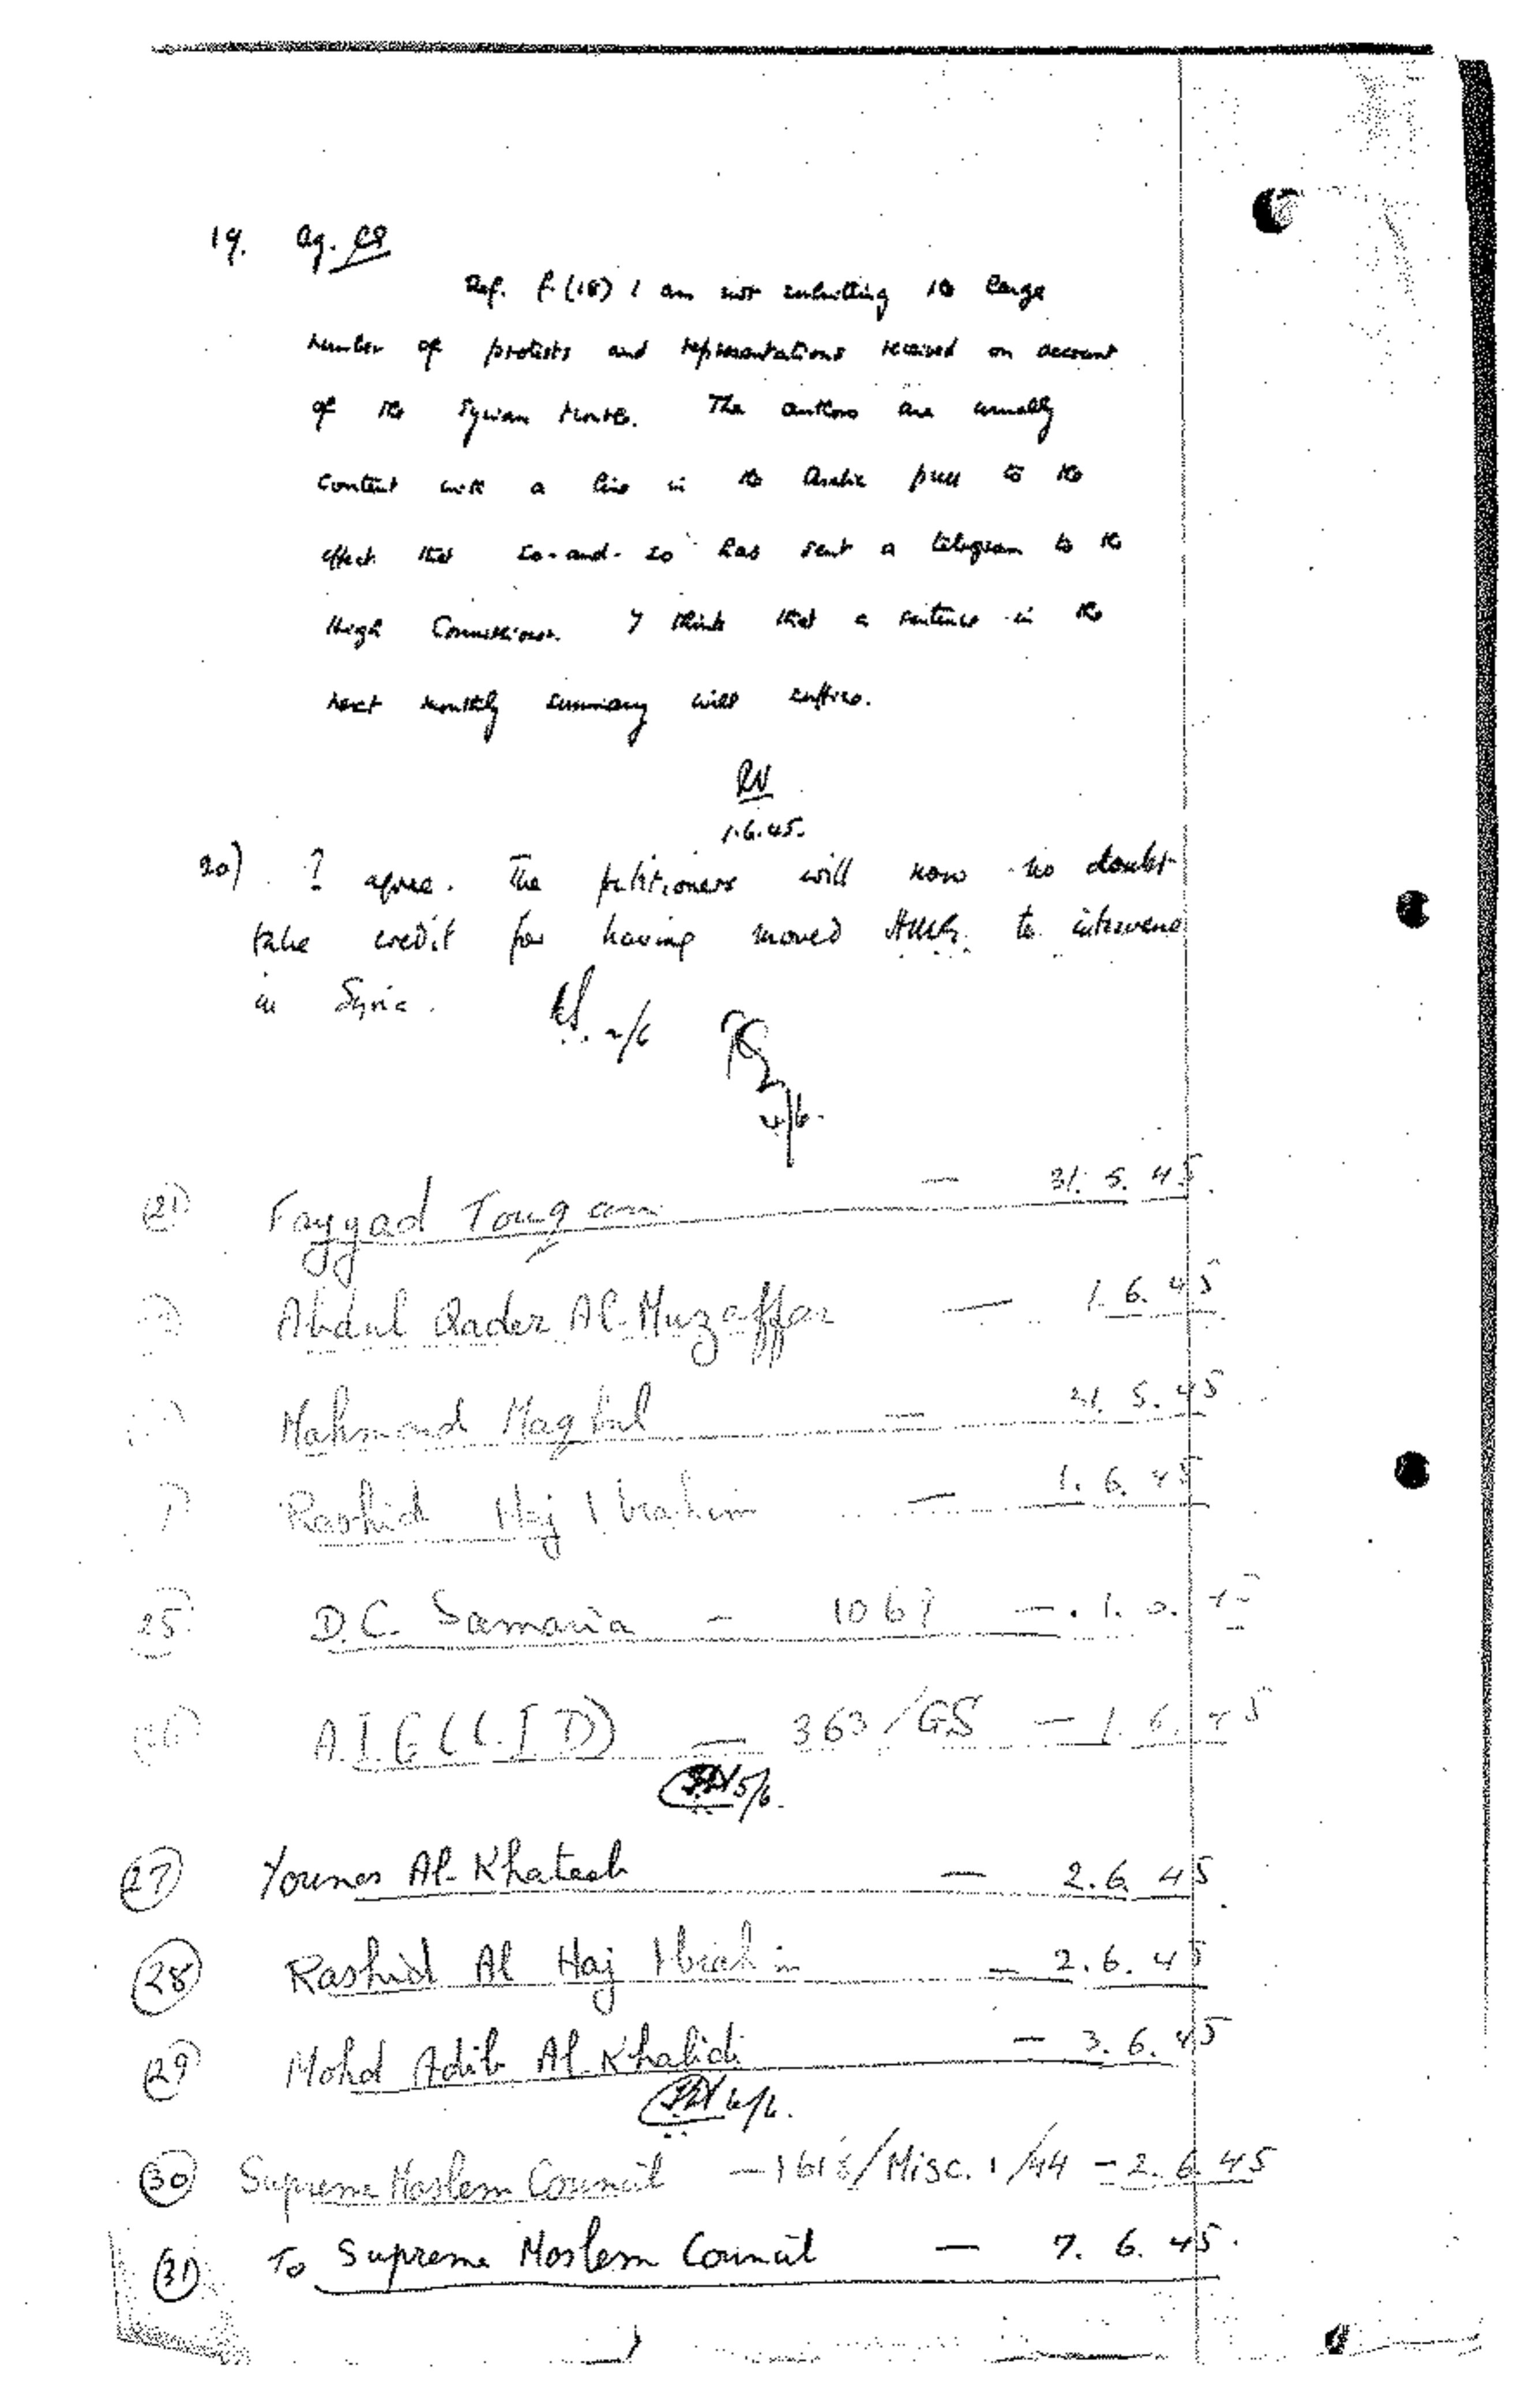 19. Ag. CS
Ref. f. (18) I am not submitting the large
number of protests and representations received on account
of the Syrian . The authors are usually
content with a line in the Arabic press to the
effect that so-and-so has sent a telegram to the
High Commissioner. I think that a sentence in the
next monthly summary will suffice.
RN
1.6.45.
20) ? agree. The petitioners will now no doubt
take credit for having moved HMG. to intervene
in Syria.
2/6
4/6.
(21) Fayyad Touqan — 31.5.45.
Abdul Qader Al-Muzaffar — 1.6.45
Mahmoud Maqbul — 31.5.45
Rashid Haj Ibrahim — 1.6.45
25 D.C. Samaria — —
26 A.I.G (C.I.D) — 363/GS — 1.6.45
5/6.
(27) Younes Al-Khateeb — 2.6.45.
(28) Rashid Al Haj Ibrahim — 2.6.45
(29) Mohd Adib Al-Khalidi — 3.6.45
6/6.
(30) Supreme Moslem Council — 1618/Misc. 1/44 — 2.6.45
(31) To Supreme Moslem Council — 7.6.45.